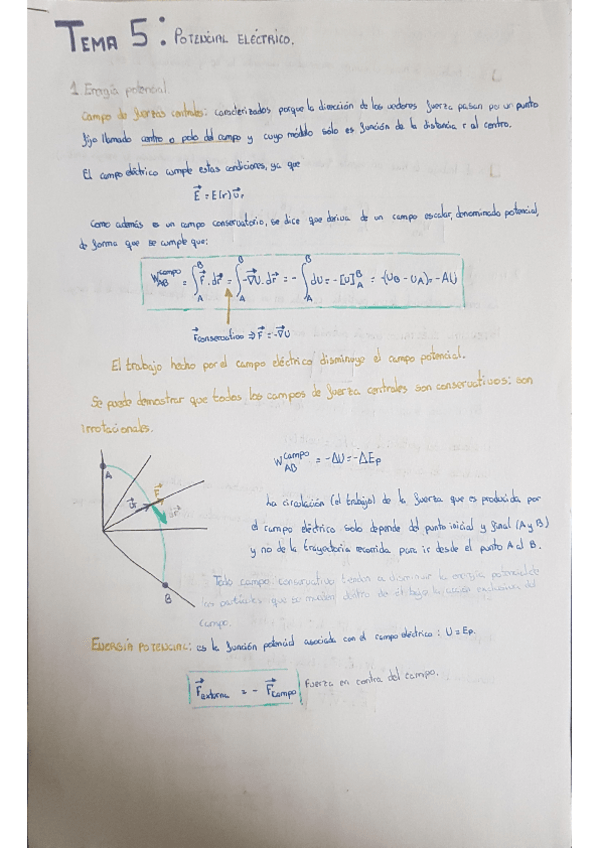 TEMA 5: POTENCIAL ELÉCTRICO.
1. Energía potencial.
Campo de fuerzas centrales: caracterizados porque la dirección de los vectores fuerza pasan por un punto
fijo llamado centro o polo del campo y cuyo módulo sólo es función de la distancia r al centro.
El campo eléctrico cumple estas condiciones, ya que
E⃗ = E(r) u⃗r
Como además es un campo conservatorio, se dice que deriva de un campo escalar, denominado potencial,
de forma que se cumple que:
W_AB^campo = ∫_A^B F⃗ · dr⃗ = ∫_A^B -∇⃗U · dr⃗ = - ∫_A^B dU = -[U]_A^B = -(U_B - U_A) = -ΔU
F⃗conservativo ⇒ F⃗ = -∇⃗U
El trabajo hecho por el campo eléctrico disminuye el campo potencial.
Se puede demostrar que todos los campos de fuerza centrales son conservativos: son
irrotacionales.
W_AB^campo = -ΔU = -ΔEp
A
u⃗r F⃗ dr⃗
B
La circulación (el trabajo) de la fuerza que es producida por
el campo eléctrico solo depende del punto inicial y final (A y B)
y no de la trayectoria recorrida para ir desde el punto A al B.
Todo campo conservativo tiende a disminuir la energía potencial de
las partículas que se mueven dentro de él bajo la acción exclusiva del
campo.
ENERGÍA POTENCIAL: es la función potencial asociada con el campo eléctrico: U = Ep.
F⃗externa = - F⃗campo Fuerza en contra del campo.